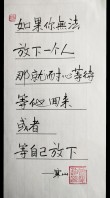 如果你無法
放下一个人
那就耐心等待
等他回来
或者
等自己放下